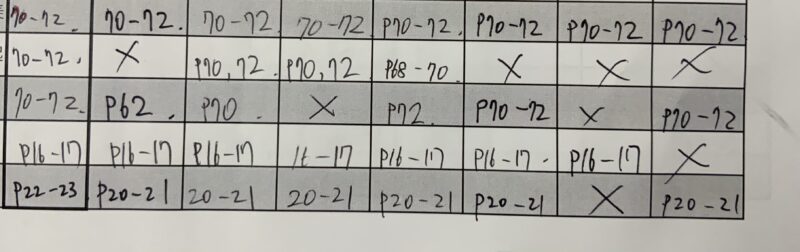 70-72. 70-72. 70-72 70-72 P70-72. P70-72 P70-72 P70-72
70-72. X P70,72 P70,72 P68-70. X X X
70-72. P62. P70. X P72. P70-72 X P70-72
P16-17 P16-17 P16-17 16-17 P16-17 P16-17. P16-17 X
P22-23 P20-21 20-21 20-21 P20-21 P20-21 X P20-21